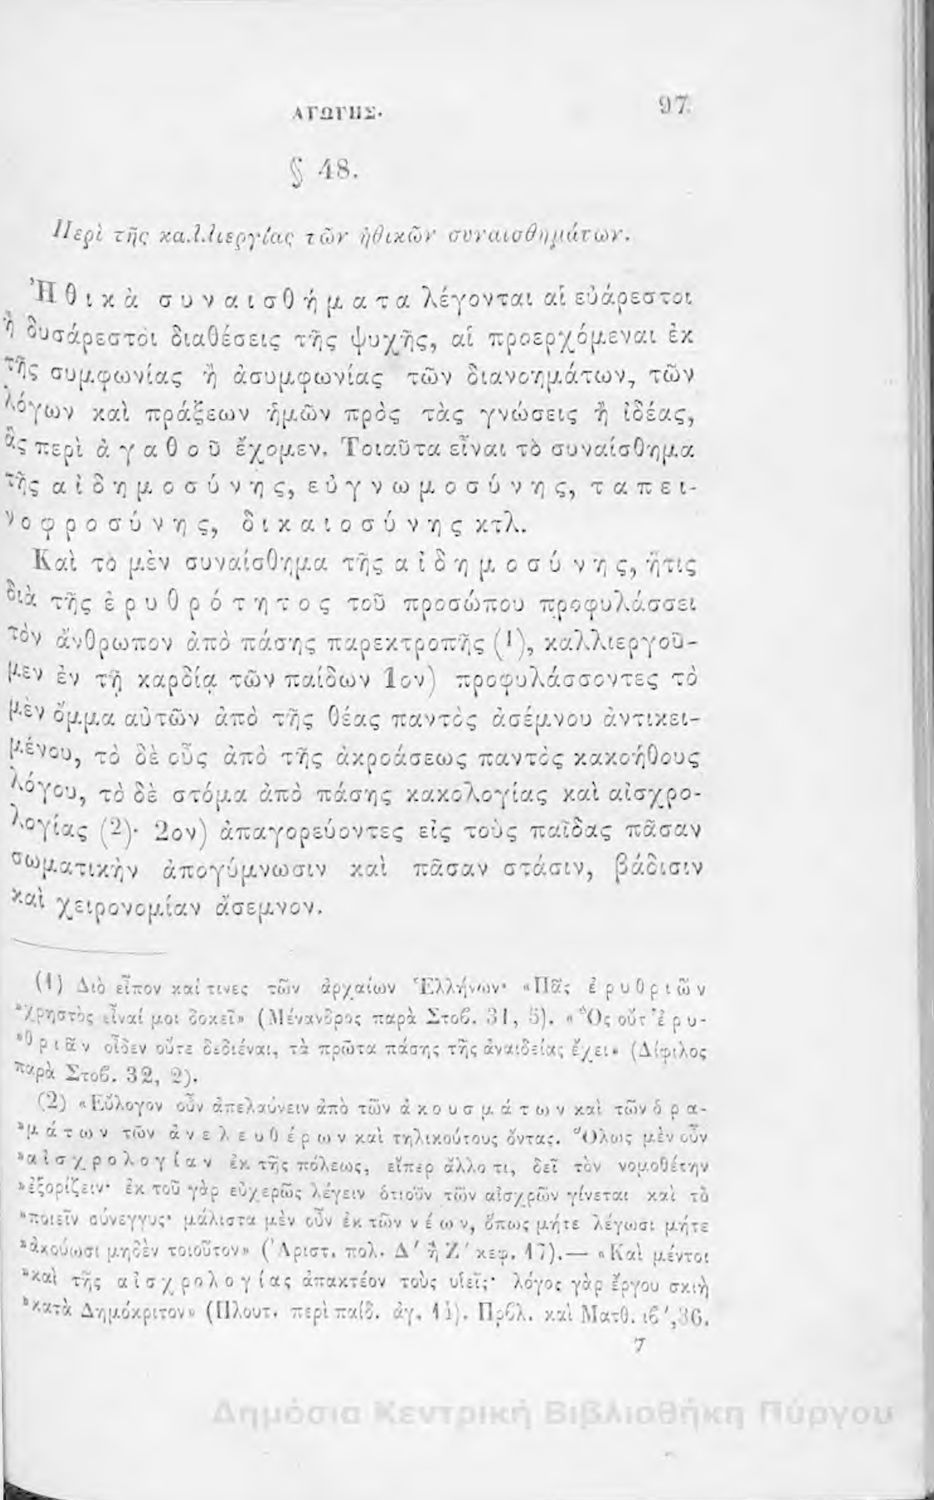 ΑΓΩΓΗΣ. 97
§ 48.
Περὶ τῆς καλλιεργίας τῶν ἠθικῶν συναισθημάτων.
Ἠθικὰ συναισθήματα λέγονται αἱ εὐάρεστοι
ἢ δυσάρεστοι διαθέσεις τῆς ψυχῆς, αἱ προερχόμεναι ἐκ
τῆς συμφωνίας ἢ ἀσυμφωνίας τῶν διανοημάτων, τῶν
λόγων καὶ πράξεων ἡμῶν πρὸς τὰς γνώσεις ἢ ἰδέας,
ἃς περὶ ἀγαθοῦ ἔχομεν. Τοιαῦτα εἶναι τὸ συναίσθημα
τῆς αἰδημοσύνης, εὐγνωμοσύνης, ταπει-
νοφροσύνης, δικαιοσύνης κτλ.
Καὶ τὸ μὲν συναίσθημα τῆς αἰδημοσύνης, ἥτις
διὰ τῆς ἐρυθρότητος τοῦ προσώπου προφυλάσσει
τὸν ἄνθρωπον ἀπὸ πάσης παρεκτροπῆς (1), καλλιεργοῦ-
μεν ἐν τῇ καρδίᾳ τῶν παίδων 1ον) προφυλάσσοντες τὸ
μὲν ὄμμα αὐτῶν ἀπὸ τῆς θέας παντὸς ἀσέμνου ἀντικει-
μένου, τὸ δὲ οὖς ἀπὸ τῆς ἀκροάσεως παντὸς κακοήθους
λόγου, τὸ δὲ στόμα ἀπὸ πάσης κακολογίας καὶ αἰσχρο-
λογίας (2)· 2ον) ἀπαγορεύοντες εἰς τοὺς παῖδας πᾶσαν
σωματικὴν ἀπογύμνωσιν καὶ πᾶσαν στάσιν, βάδισιν
καὶ χειρονομίαν ἄσεμνον.
(1) Διὸ εἶπον καί τινες τῶν ἀρχαίων Ἑλλήνων· «Πᾶς ἐρυθριῶν
»χρηστὸς εἶναί μοι δοκεῖ» (Μένανδρος παρὰ Στοβ. 31, 5). «Ὃς οὔτ' ἐρυ-
»θριᾶν οἶδεν οὔτε δεδιέναι, τὰ πρῶτα πάσης τῆς ἀναιδείας ἔχει» (Δίφιλος
παρὰ Στοβ. 32, 2).
(2) «Εὔλογον οὖν ἀπελαύνειν ἀπὸ τῶν ἀκουσμάτων καὶ τῶν ὁρα-
»μάτων τῶν ἀνελευθέρων καὶ τηλικούτους ὄντας. Ὅλως μὲν οὖν
»αἰσχρολογίαν ἐκ τῆς πόλεως, εἴπερ ἄλλο τι, δεῖ τὸν νομοθέτην
»ἐξορίζειν· ἐκ τοῦ γὰρ εὐχερῶς λέγειν ὁτιοῦν τῶν αἰσχρῶν γίνεται καὶ τὸ
»ποιεῖν σύνεγγυς· μάλιστα μὲν οὖν ἐκ τῶν νέων, ὅπως μήτε λέγωσι μήτε
»ἀκούωσι μηδὲν τοιοῦτον» (Ἀριστ. πολ. Δ′ ἢ Ζ′ κεφ. 17).— «Καὶ μέντοι
»καὶ τῆς αἰσχρολογίας ἀπακτέον τοὺς υἱεῖς· λόγος γὰρ ἔργου σκιὴ
»κατὰ Δημόκριτον» (Πλουτ. περὶ παίδ. ἀγ. 14). Πρβλ. καὶ Ματθ. ιβ′, 36.
7
Δημόσια Κεντρική Βιβλιοθήκη Πύργου